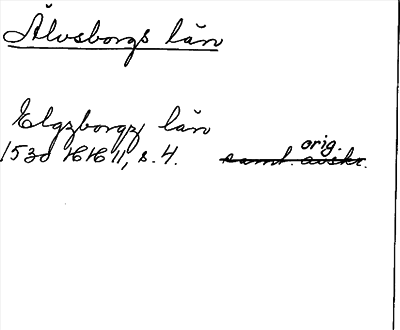 Älvsborgs län
Elgzborgz län
orig.
1530 HH 11, s. 4. samt. avskr.